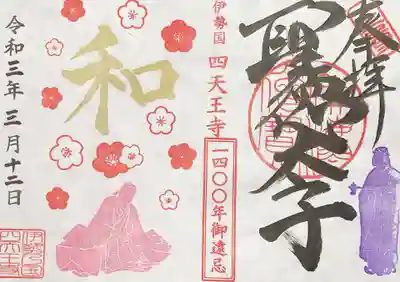 奉拝
聖徳太子
伊勢国 四天王寺
一四〇〇年御遠忌
和
令和三年三月十二日